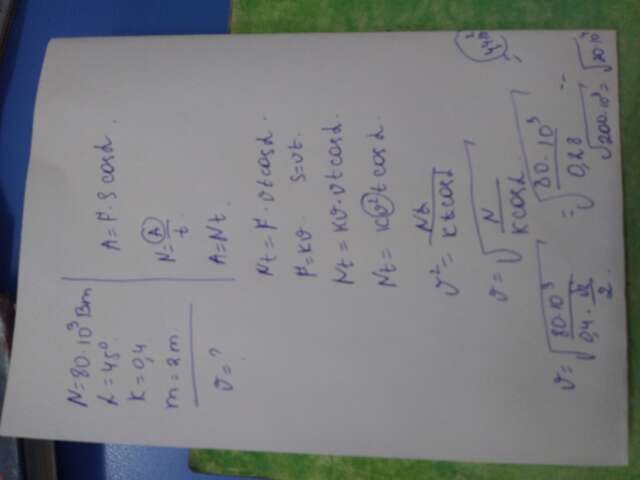 N=80·10³Вт
α=45°
k=0,4
m=2т
υ=?
A=F·S cosα.
N=A/t
A=Nt.
Nt=F·υtcosα.
F=kυ. S=υt.
Nt=kυ·υtcosα.
Nt=kυ²tcosα.
υ²=Nt/ktcosα
υ=√N/kcosα
υ=√80·10³/0,4·√2/2 =√80·10³/0,28
√200·10³=√20·10⁴